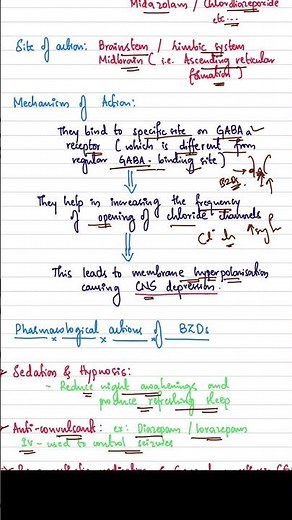 Midazolam / Chlordiazepoxide
etc...
Site of action: Brainstem / limbic system
Midbrain ( i.e. Ascending reticular
formation )
Mechanism of Action:
They bind to specific site on GABA a
receptor ( which is different from
regular GABA - binding site )
BZDs
They help in increasing the frequency
of opening of chloride channels
Cl⁻ in
This leads to membrane hyperpolarisation
causing CNS depression.
Pharmacological actions of BZDs
Sedation & Hypnosis:
- Reduce night awakenings and
produce refreshing sleep
Anti-convulsant: ex: Diazepam / lorazepam
IV - used to control seizures